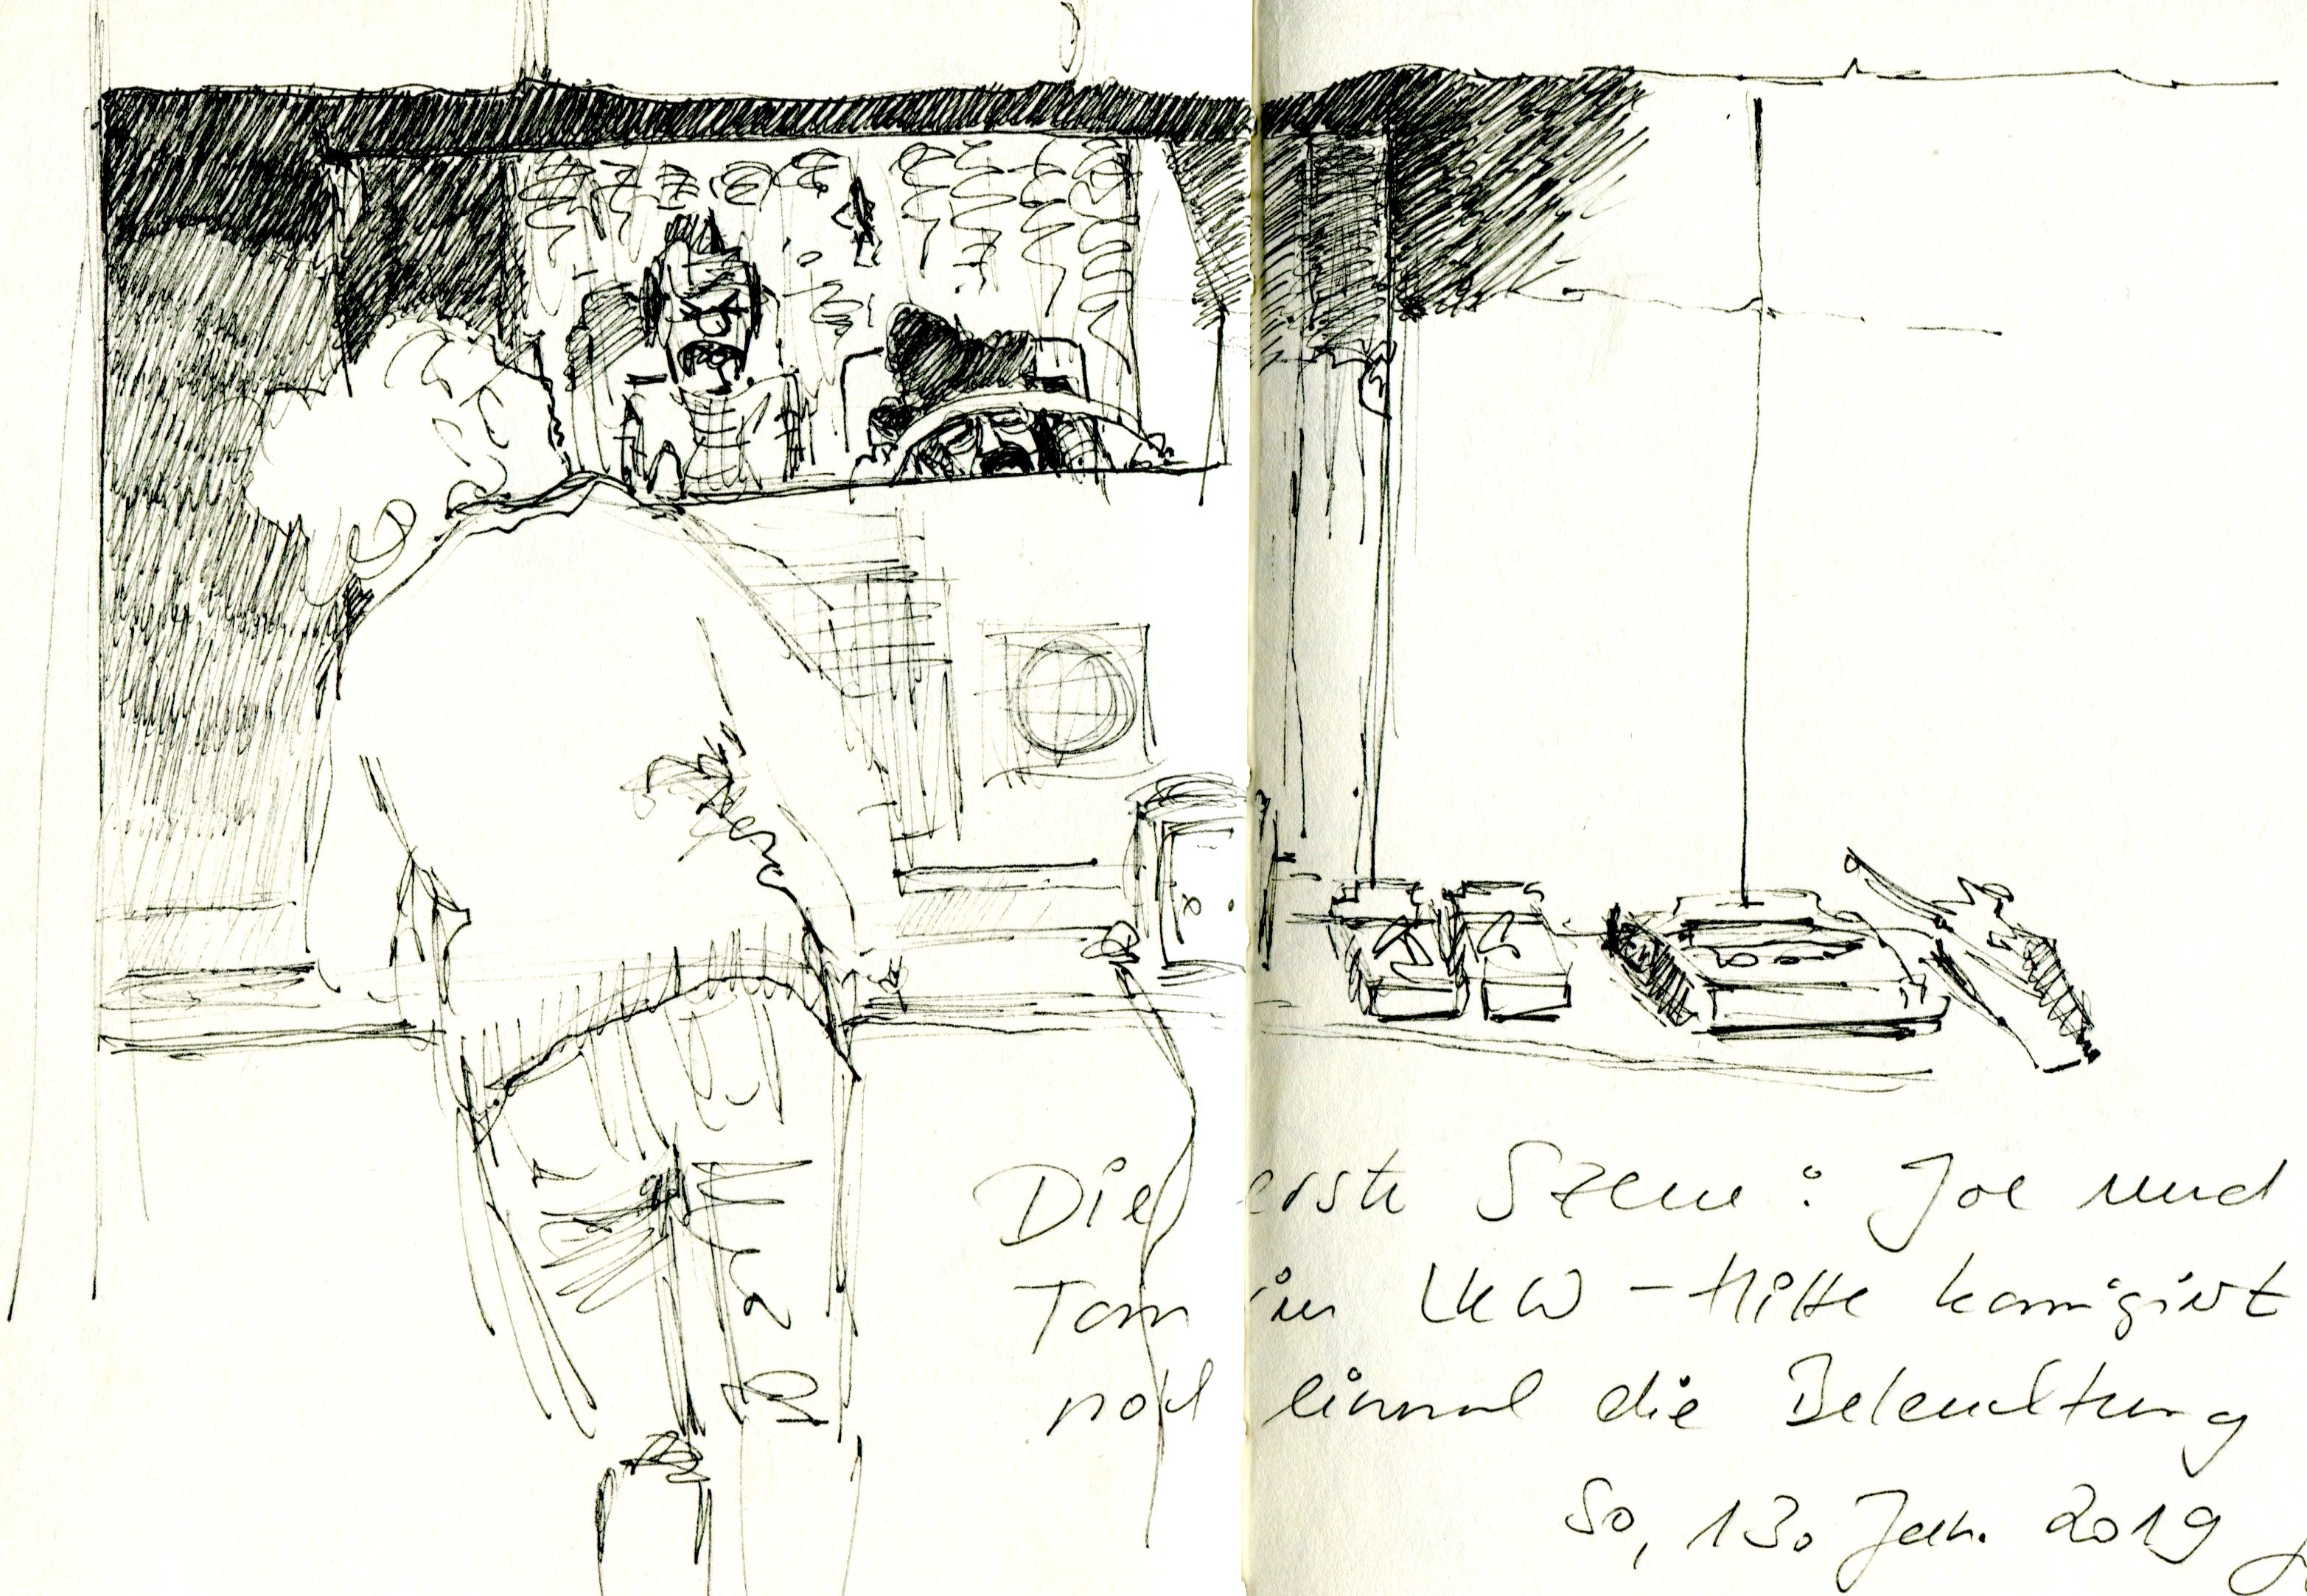 Die erste Szene: Joe und
Tom im LKW - korrigiert
noch einmal die Beleuchtung
So, 13. Jan. 2019